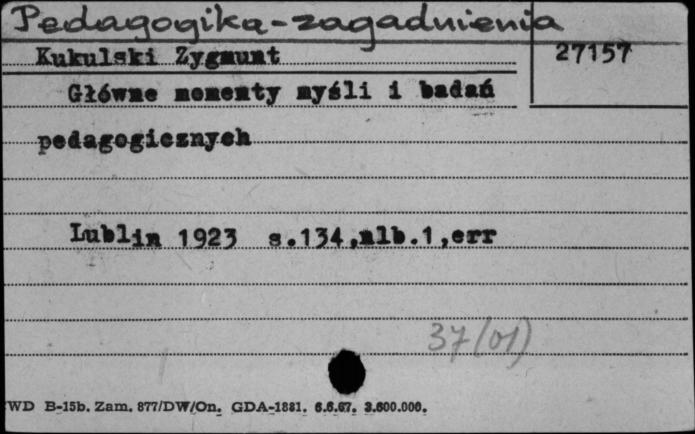 Pedagogika-zagadnienia
Kukulski Zygmunt
27157
Główne momenty myśli i badań
pedagogicznych
Lublin 1923 s.134,nlb.1,err
37(01)
WD B-15b. Zam. 877/DW/On. GDA-1881. 6.6.67. 3.600.000.